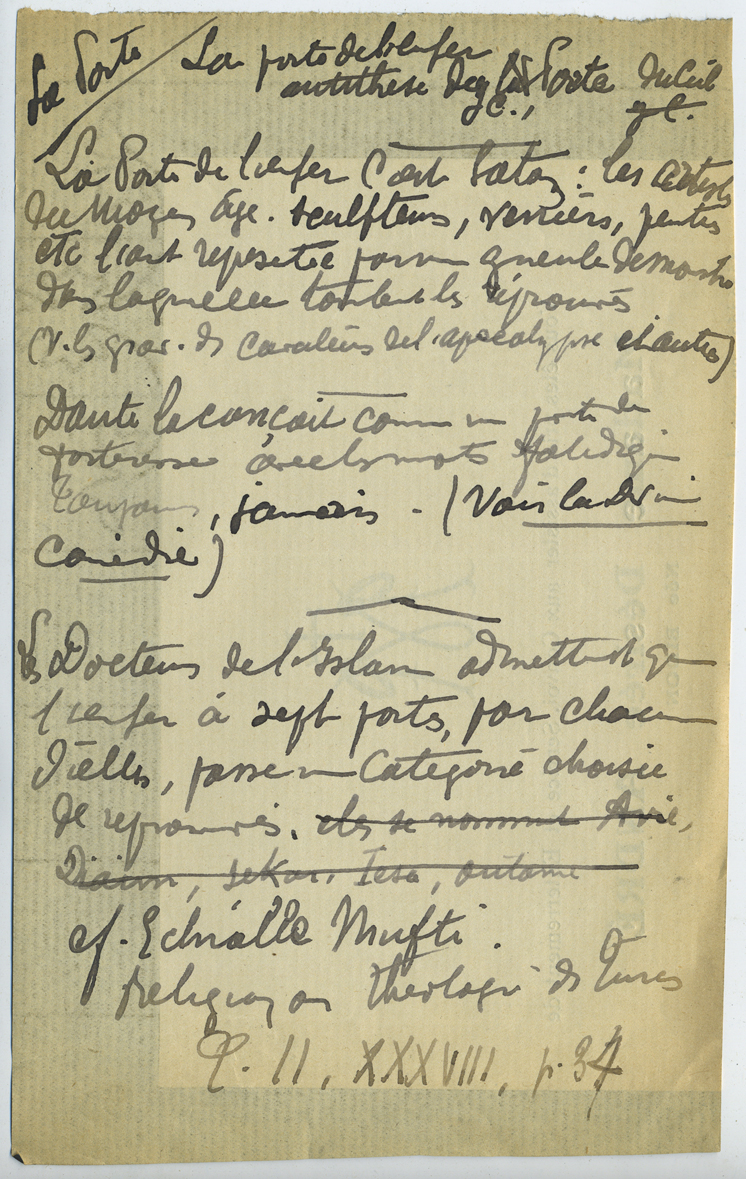 La Porte / La porte de l'enfer
antithèse de la Porte du Ciel
La Porte de l'enfer c'est Satan : les artistes
du Moyen âge. sculpteurs, verriers, peintres
etc l'ont représentée par une gueule de monstre
dans laquelle tombent les réprouvés
(V. les grav. des cavaliers de l'apocalypse et autres)
Dante la conçoit comme une porte de
forteresse avec les mots
Toujours, jamais. (Voir la Divine
Comédie)
Les Docteurs de l'Islam admettent que
l'enfer à sept portes, par chacune
d'elles, passe une Catégorie choisie
de réprouvés. elles se nomment
cf. Echialle Mufti.
Religion ou théologie des Turcs
T. II, XXXVIII, p. 34